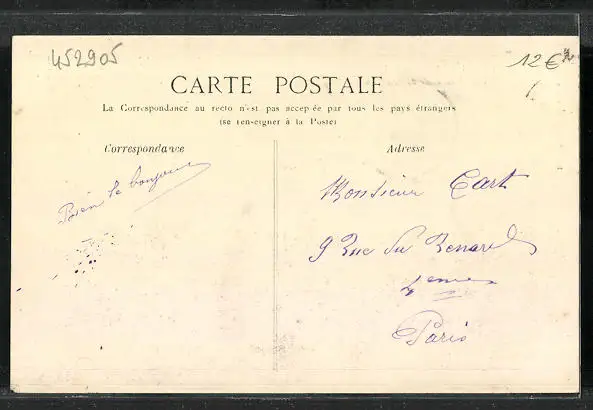 452905
12 €
CARTE POSTALE
La Correspondance au recto n'est pas acceptée par tous les pays étrangers
(se renseigner à la Poste)
Correspondance
Adresse
Bien le bonjour
Monsieur Cart
9 Rue du Renard
4eme
Paris